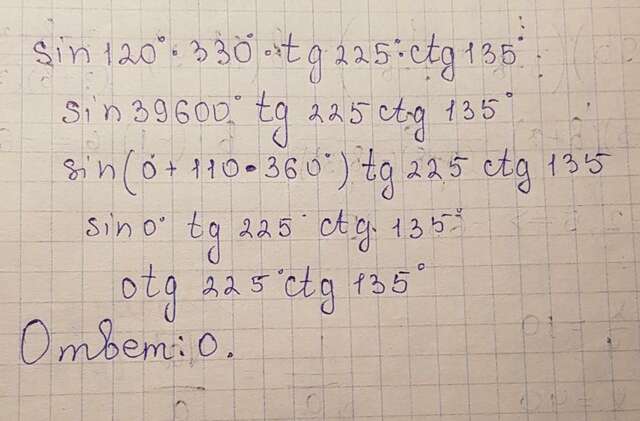 sin 120° · 330° · tg 225° · ctg 135°
sin 39600° tg 225 ctg 135°
sin(0 + 110 · 360°) tg 225 ctg 135
sin 0° tg 225° ctg 135°
0tg 225° ctg 135°
Ответ: 0.